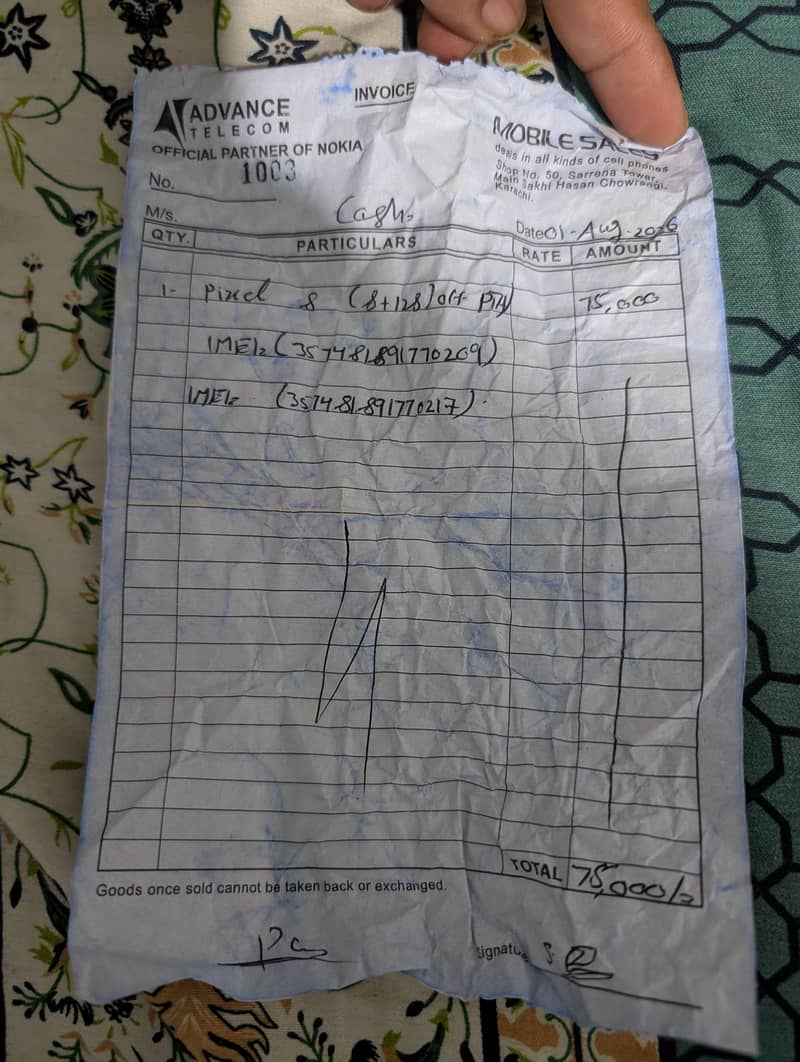 INVOICE
ADVANCE
TELECOM
OFFICIAL PARTNER OF NOKIA
MOBILE SALES
deals in all kinds of cell phones
Shop No. 50, Sarrena Tower,
Main Sakhi Hasan Chowrangi,
Karachi.
No. 1003
M/s. Cash
Date 01-Aug-2026
QTY. PARTICULARS RATE AMOUNT
1- Pixel 8 (8+128) off PTA 75,000
IMEI (357481891770209)
IMEI (357481891770217)
TOTAL 75,000/-
Goods once sold cannot be taken back or exchanged.
Signature